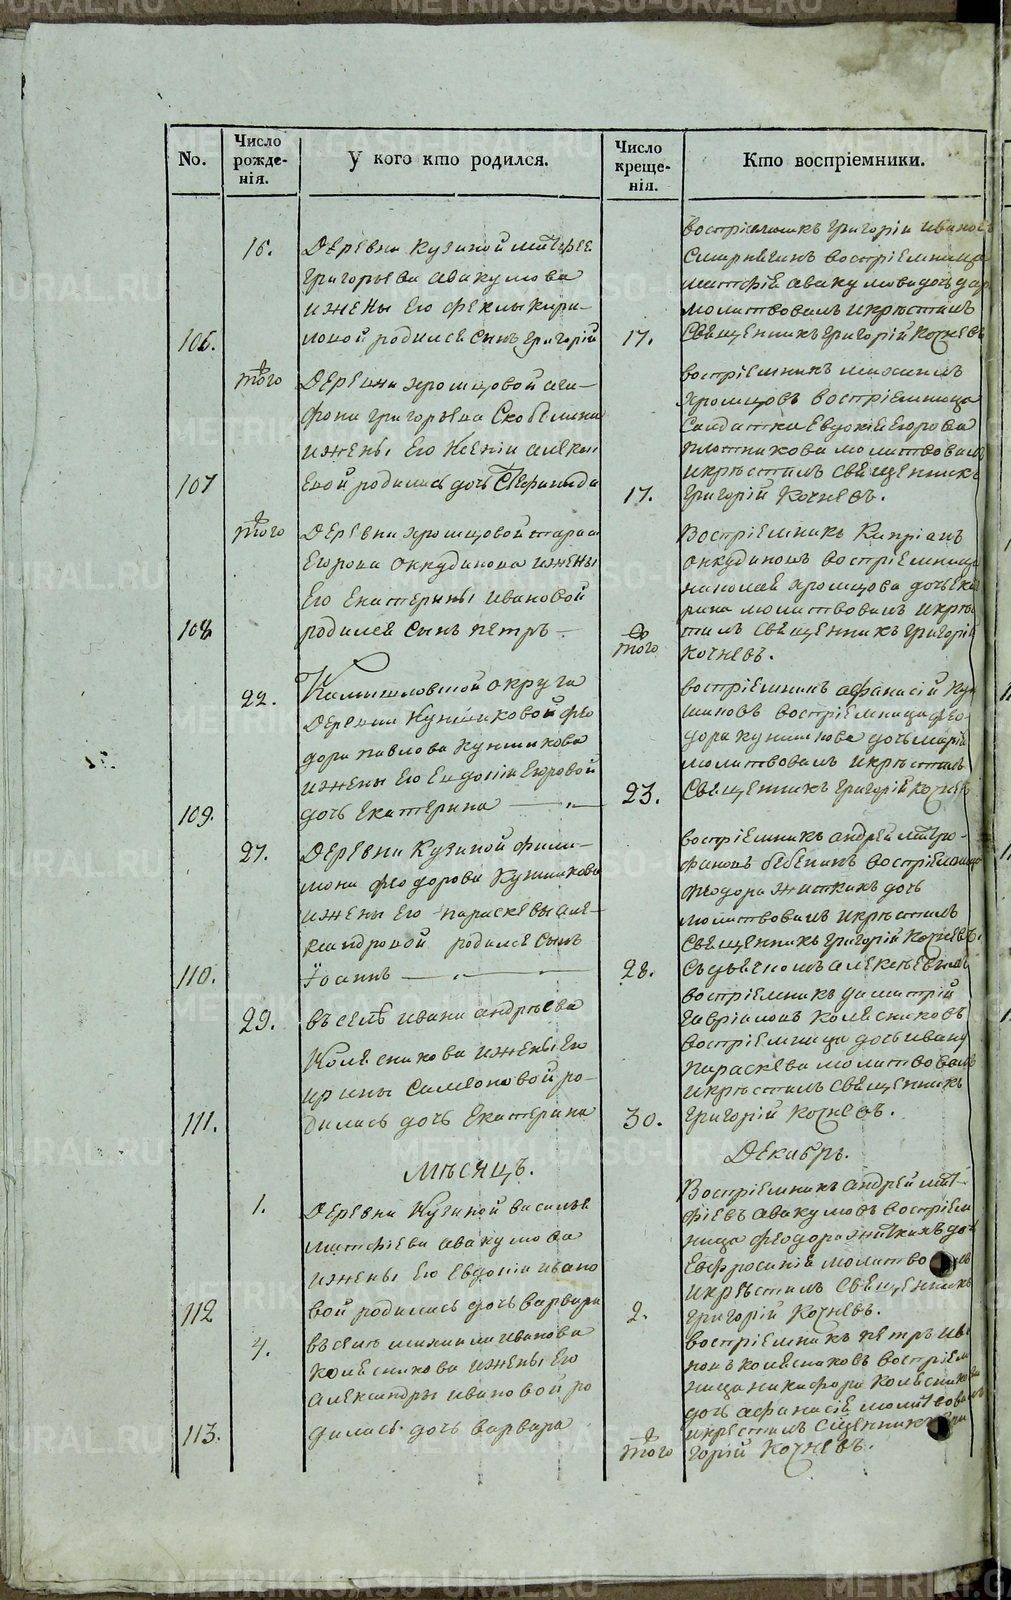 No.
Число рожде-
нія.
У кого кто родился.
Число креще-
нія.
Кто воспріемники.
16.
Деревни Кузиной
Григорьева Авакумова
и жены его Феклы Кири-
106.
ловой родился сынъ Григорій
17.
воспріемникъ Григорій Иванов
воспріемница
Авакумова дочь
молитвовалъ и крѣстилъ
Священникъ Григорій Кочневъ
того
Деревни Хромцовой Ага-
фона Григорьева
и жены его Ксеніи
107
родилась дочь Стефанида
17.
воспріемникъ
Хромцовъ воспріемница
Солдатка Евдокія Егорова
молитвовалъ
и крѣстилъ Священникъ
Григорій Кочневъ.
того
Деревни Хромцовой
Егорова Анкудинова и жены
Его Екатерины Ивановой
108
родился сынъ Петръ
того
Воспріемникъ Кипріанъ
Анкудиновъ воспріемница
Николая Хромцова дочь Екате
рина молитвовалъ и крѣс
тилъ Священникъ Григорій
Кочневъ.
22.
Камышловской округа
Деревни
дора Павлова
и жены Его Евдокіи Егоровой
109.
дочь Екатерина
23.
воспріемникъ Афанасій
воспріемница Фео-
дора дочь Марія
молитвовалъ и крѣстилъ
Священникъ Григорій Кочнев
27.
Деревни Кузиной Фили-
мона Феодорова
и жены Его Параскевы Але-
ксандровой родился сынъ
110.
Іоаннъ
28.
воспріемникъ Андрей Митро-
фановъ Бабкинъ воспріемница
Феодора дочь
молитвовалъ и крѣстилъ
Священникъ Григорій Кочневъ.
29.
въ селѣ Ивана Андрѣева
Колесникова и жены Его
Ирины Самсоновой ро-
111.
дилась дочь Екатерина
30.
воспріемникъ Димитрій
Гавріиловъ Колесниковъ
воспріемница дочь Ивана
Параскева молитвовалъ
и крѣстилъ Священникъ
Григорій Кочневъ.
Мѣсяцъ.
Декабрь.
1.
Деревни Кузиной Василья
Матфіева Авакумова
и жены Его Евдокіи Ивано
112
вой родилась дочь Варвара
2.
Воспріемникъ Андрей Мат-
фіевъ Авакумовъ воспріем
ница Феодора
Евфросинія
и крѣстилъ Священникъ
Григорій Кочневъ.
4.
въ селѣ Михаила Иванова
Колесникова и жены Его
Александры Ивановой ро
113.
дилась дочь Варвара
того
воспріемникъ Петръ Ив
новъ Колесниковъ воспріем
ница Никифора Колесникова
дочь Афанасія молитвовалъ
и крѣстилъ Сщенникъ Гри
горій Кочневъ.
METRIKI.GASO-URAL.RU